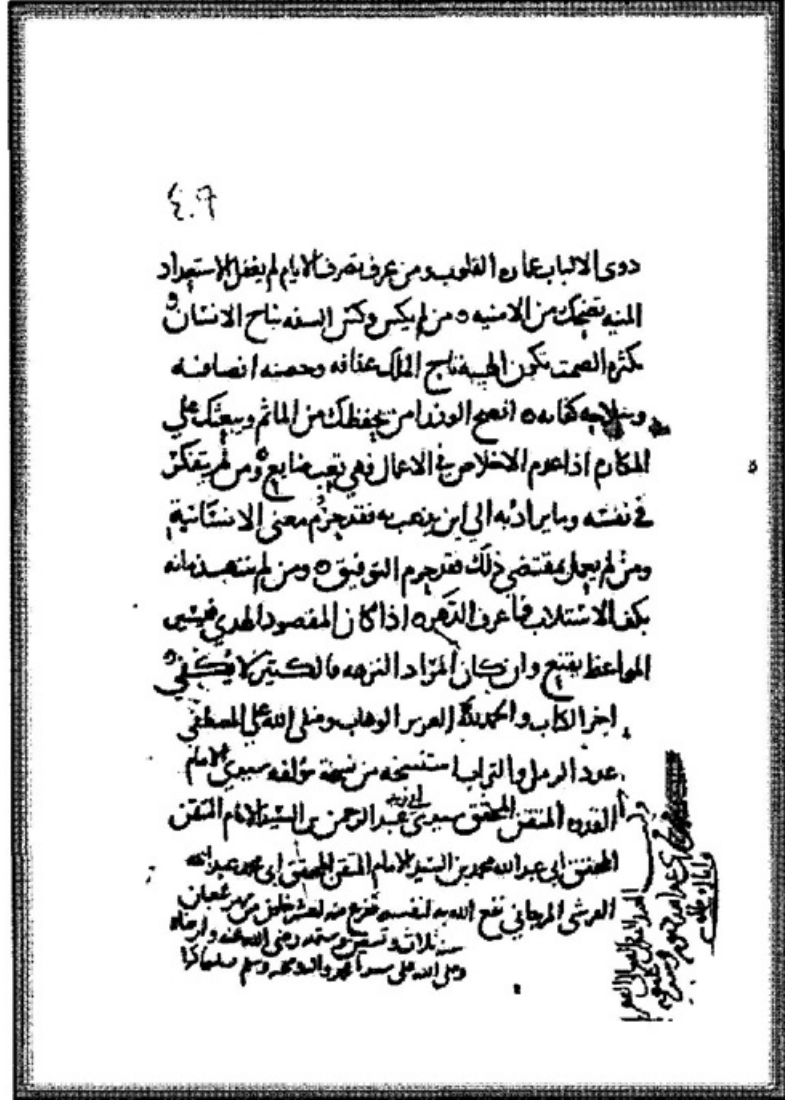 ٤٠٩
ذوى الالباب عمارة القلوب ومن عرف تصرف الايام لم يغفل الاستعداد
المنيه تضحك من الامنيه ه من لم يكس وكثر السفه تاج الانسان و
بكثرة الصمت تكون الهيبة تاج الملك عفافه وحصنه انصافه
وسلاحه كفاته ه انصح الوزرا من يحفظك من الماثم ويبعثك علي
المكارم اذا عدم الاخلاص في الاعمال فهي تعب ضايع ه ومن لم يتفكر
في نفسه وما يراد به الي اين يذهب به فقد حرم معنى الانسانية
ومن لم يعمل بمقتضى ذلك فقد حرم التوفيق ه ومن لم زمانه
بكف الاستلاب فما عرف الدهر ه اذا كان المقصود الهدي فيسير
المواعظ يقنع وان كان المراد النزهه فالكثير لا يكفي ه
اخر الكتاب والحمد لله العزيز الوهاب وصلى الله على المصطفى
عدد الرمل والتراب استنسخه من نسخة مؤلفه سيدي الامام
القدوه المتقن المحقق سيدي ابي زيد عبد الرحمن بن السيد الامام المتقن
المحقق ابي عبد الله محمد بن السيد الامام المتقن المحقق ابي محمد عبد الله
القرشي المرجاني نفع الله به لنفسه ففرغ منه لعشر خلون من شهر شعبان
سنة ثلاث وتسعين وستمه رضى الله عنه وارضاه
وصلى الله على سيدنا محمد واله وصحبه وسلم تسليما كثيرا